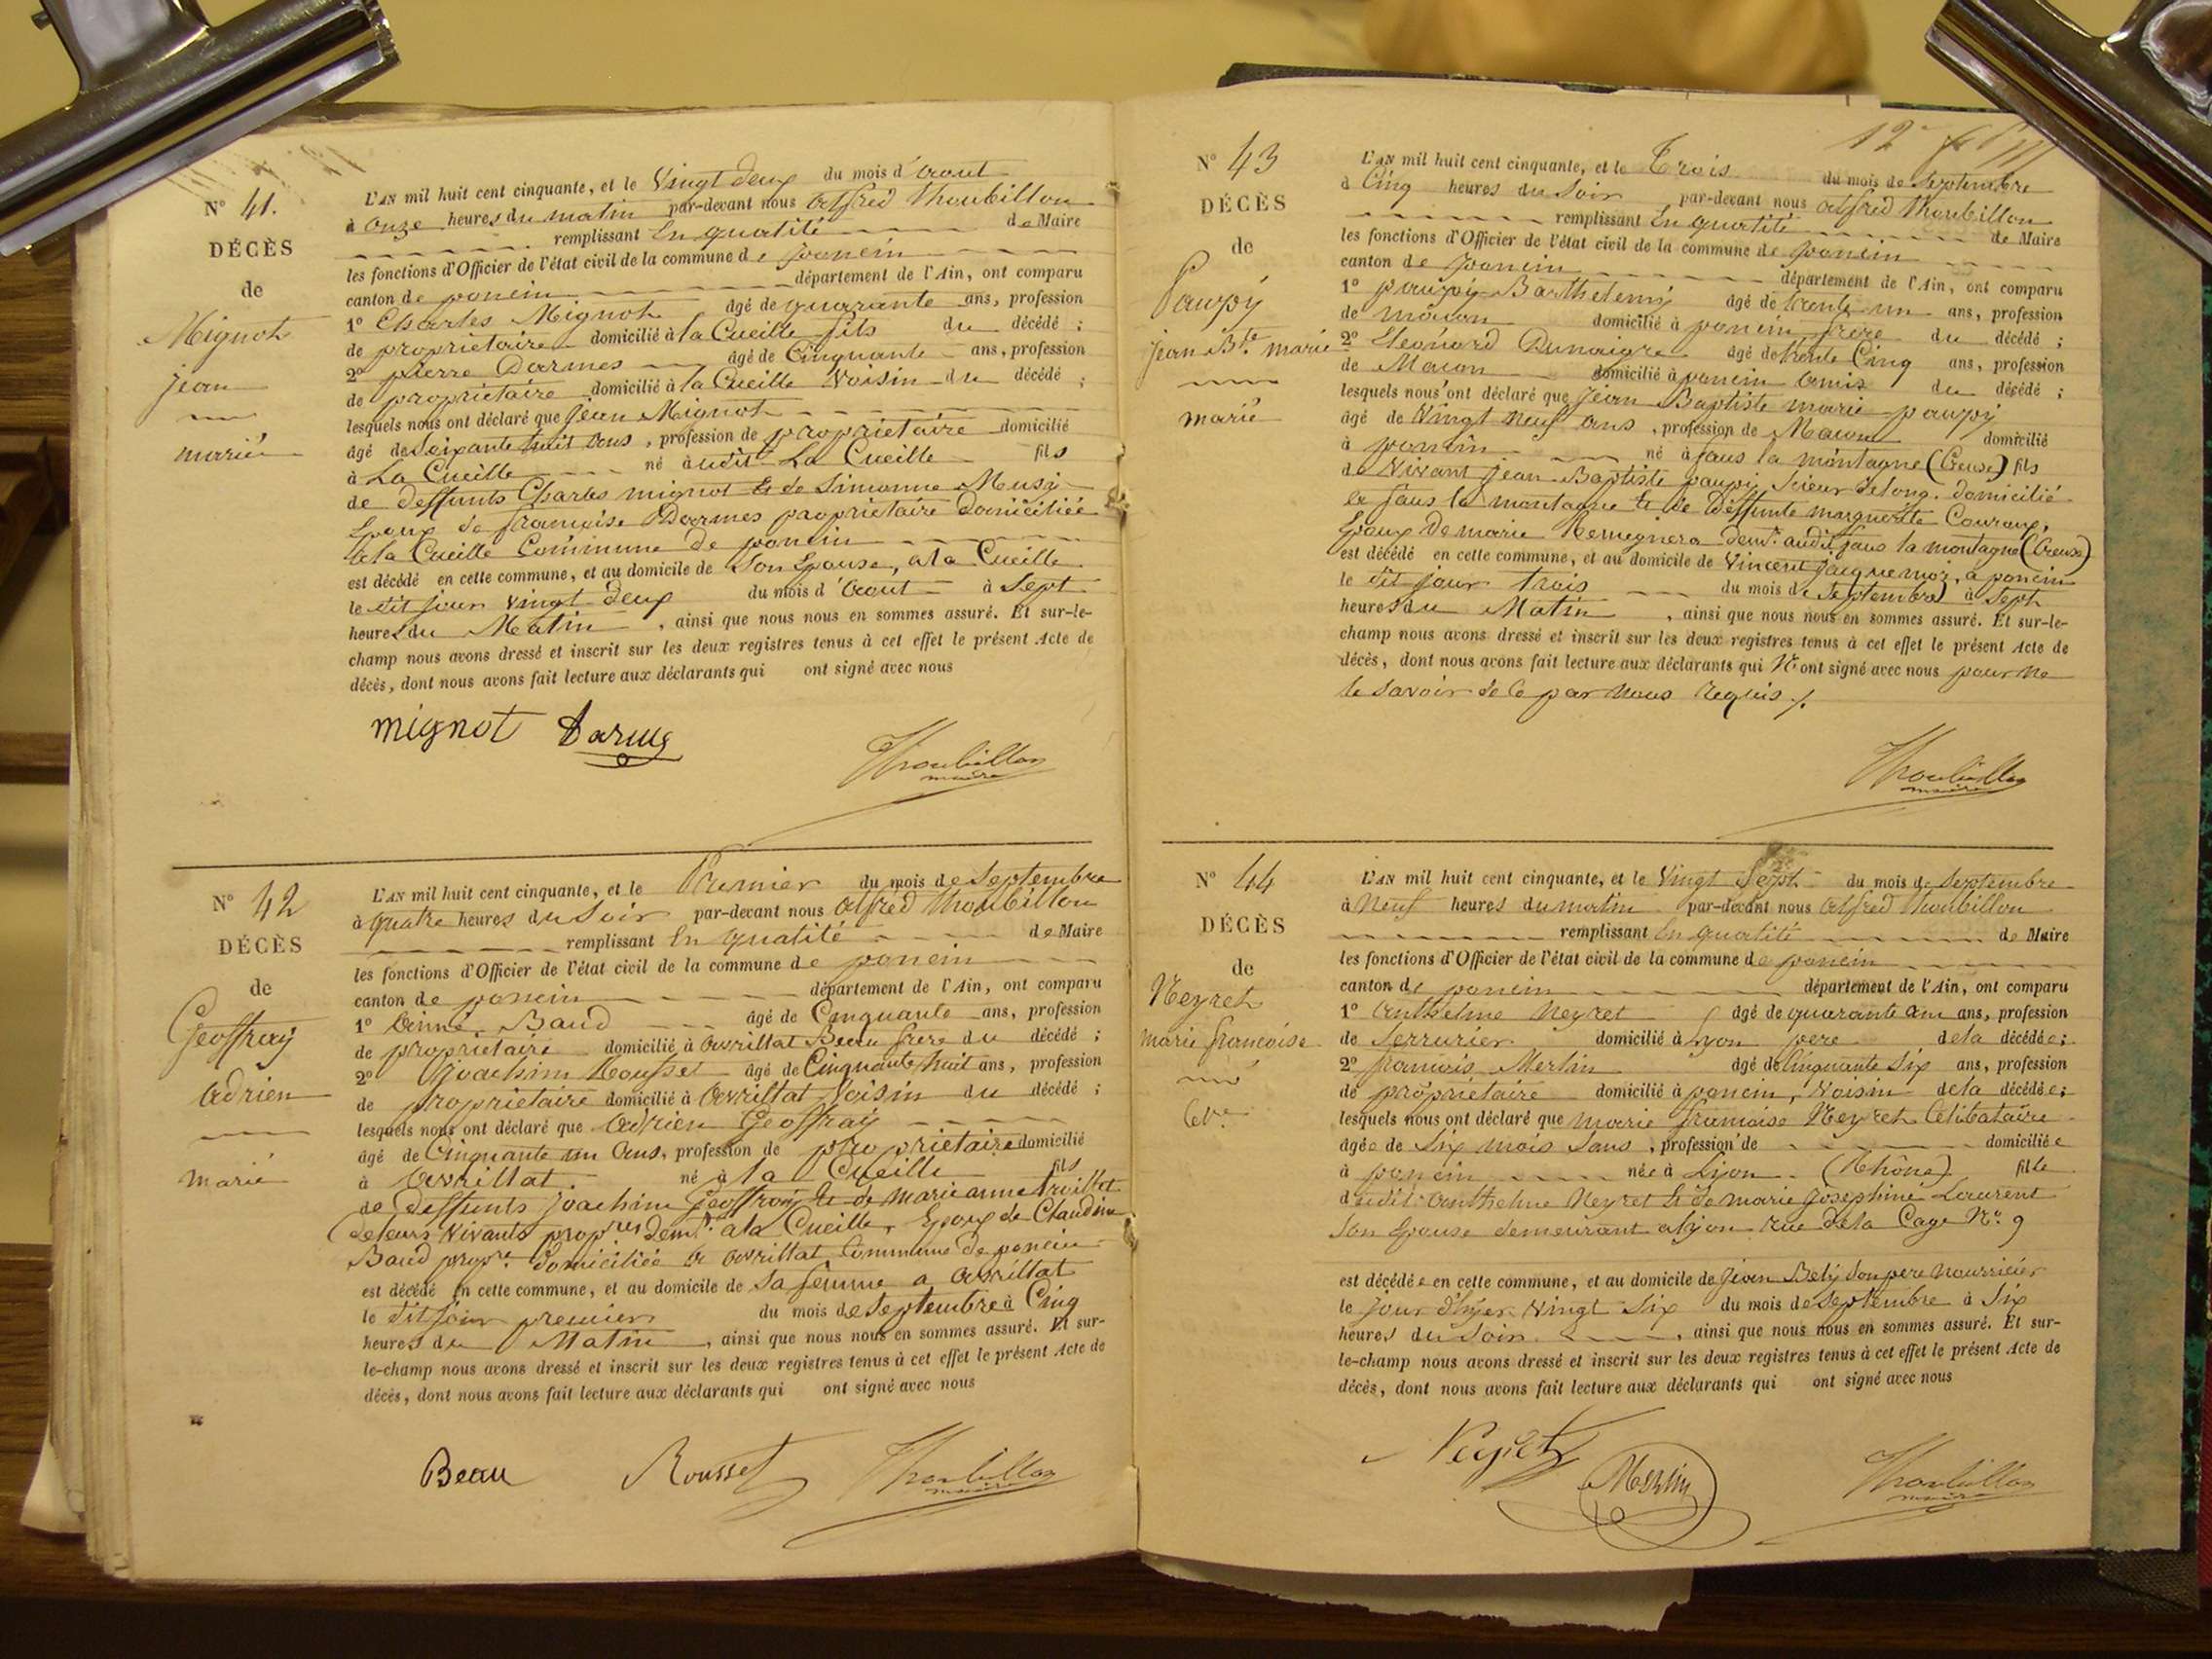 N° 41.
DÉCÈS
de
Mignot
jean
marié
L'AN mil huit cent cinquante, et le Vingt deux du mois d'Aout
à Onze heures du matin par-devant nous Alfred Thoubillon
remplissant En qualité de Maire
les fonctions d'Officier de l'état civil de la commune de poncin
canton de poncin département de l'Ain, ont comparu
1° Charles Mignot âgé de quarante ans, profession
de proprietaire domicilié à la Cueille fils du décédé ;
2° pierre Darmes âgé de Cinquante ans, profession
de proprietaire domicilié à la Cueille Voisin du décédé ;
lesquels nous ont déclaré que jean Mignot
âgé de Soixante huit ans, profession de proprietaire domicilié
à La Cueille né audit La Cueille fils
de deffunts Charles mignot Et de Simonne Musy
Epoux de françoise Darmes proprietaire domiciliée
à la Cueille Commune de poncin
est décédé en cette commune, et au domicile de Son Epouse, a la Cueille
le dit jour Vingt deux du mois d'Aout à Sept
heures du Matin, ainsi que nous nous en sommes assuré. Et sur-le-
champ nous avons dressé et inscrit sur les deux registres tenus à cet effet le présent Acte de
décès, dont nous avons fait lecture aux déclarants qui ont signé avec nous
mignot Darmes
Thoubillon
maire
N° 42
DÉCÈS
de
Geoffray
Adrien
marié
L'AN mil huit cent cinquante, et le Premier du mois de Septembre
à quatre heures du Soir par-devant nous Alfred Thoubillon
remplissant En qualité de Maire
les fonctions d'Officier de l'état civil de la commune de poncin
canton de poncin département de l'Ain, ont comparu
1° Baud âgé de Cinquante ans, profession
de proprietaire domicilié à Avrillat Beau frere du décédé ;
2° Joachim Rousset âgé de Cinquante huit ans, profession
de proprietaire domicilié à Avrillat Voisin du décédé ;
lesquels nous ont déclaré que Adrien Geoffray
âgé de Cinquante un Ans, profession de proprietaire domicilié
à Avrillat né à la Cueille fils
de deffunts Joachim Geoffray Et de marie anne
de leurs Vivants propres demt. a la Cueille, Epoux de Claudine
Baud propre. domiciliée a Avrillat Commune de poncin
est décédé en cette commune, et au domicile de Sa femme a Avrillat
le dit jour premier du mois de Septembre à Cinq
heures du Matin, ainsi que nous nous en sommes assuré. Et sur-
le-champ nous avons dressé et inscrit sur les deux registres tenus à cet effet le présent Acte de
décès, dont nous avons fait lecture aux déclarants qui ont signé avec nous
Beau Rousset Thoubillon
maire
N° 43
DÉCÈS
de
Paupy
jean Bte. marie
marié
L'AN mil huit cent cinquante, et le Trois du mois de Septembre
à Cinq heures du Soir par-devant nous Alfred Thoubillon
remplissant En qualité de Maire
les fonctions d'Officier de l'état civil de la commune de poncin
canton de poncin département de l'Ain, ont comparu
1° paupy Barthelemy âgé de trente un ans, profession
de macon domicilié à poncin frere du décédé ;
2° Léonard Dunaigre âgé de trente Cinq ans, profession
de Macon domicilié à poncin Amis du décédé ;
lesquels nous ont déclaré que Jean Baptiste marie paupy
âgé de Vingt neuf ans, profession de Macon domicilié
à poncin né à faux la montagne (Creuse) fils
de Vivant jean Baptiste paupy Scieur de long. domicilié
a faux la montagne Et de Deffunte marguerite Couraux,
Epoux de marie demt. audit faux la montagne (Creuse)
est décédé en cette commune, et au domicile de Vincent Jacquemoz, a poncin
le dit jour trois du mois de Septembre à Sept
heures du Matin, ainsi que nous nous en sommes assuré. Et sur-le-
champ nous avons dressé et inscrit sur les deux registres tenus à cet effet le présent Acte de
décès, dont nous avons fait lecture aux déclarants qui N'ont signé avec nous pour ne
le Savoir de Ce par Nous requis ./.
Thoubillon
maire
N° 44
DÉCÈS
de
Neyret
marie françoise
Cére
L'AN mil huit cent cinquante, et le Vingt Sept du mois de Septembre
à Neuf heures du matin par-devant nous Alfred Thoubillon
remplissant En qualité de Maire
les fonctions d'Officier de l'état civil de la commune de poncin
canton de poncin département de l'Ain, ont comparu
1° Anthelme Neyret âgé de quarante ans, profession
de Serrurier domicilié à Lyon pere de la décédée ;
2° françois Merlin âgé de Cinquante Six ans, profession
de proprietaire domicilié à poncin, Voisin de la décédée ;
lesquels nous ont déclaré que marie françoise Neyret Célibataire
âgée de Six mois Sans, profession de domiciliée
à poncin née à Lyon (Rhône) fille
dudit Anthelme Neyret Et de marie Josephine Laurent
Son Epouse demeurant a Lyon rue de la Cage N°. 9
est décédée en cette commune, et au domicile de Jean Bely Son pere Nourricier
le Jour d'hyer Vingt Six du mois de Septembre à Six
heures du Soir, ainsi que nous nous en sommes assuré. Et sur-
le-champ nous avons dressé et inscrit sur les deux registres tenus à cet effet le présent Acte de
décès, dont nous avons fait lecture aux déclarants qui ont signé avec nous
Neyret
Merlin
Thoubillon
maire